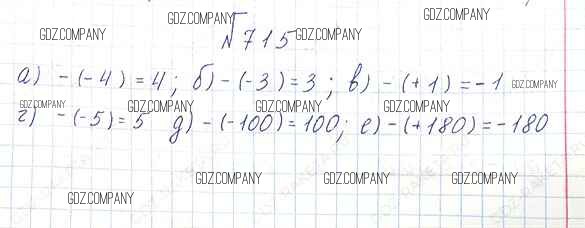 GDZ.COMPANY
GDZ.COMPANY GDZ.COMPANY GDZ.COMPANY
№ 715
а) -(-4) = 4; б) -(-3) = 3; в) -(+1) = -1 GDZ.COMPANY
GDZ.COMPANY GDZ.COMPANY GDZ.COMPANY GDZ.COMPANY
г) -(-5) = 5 д) -(-100) = 100; е) -(+180) = -180
GDZ.COMPANY GDZ.COMPANY GDZ.COMPANY
GDZ.COMPANY